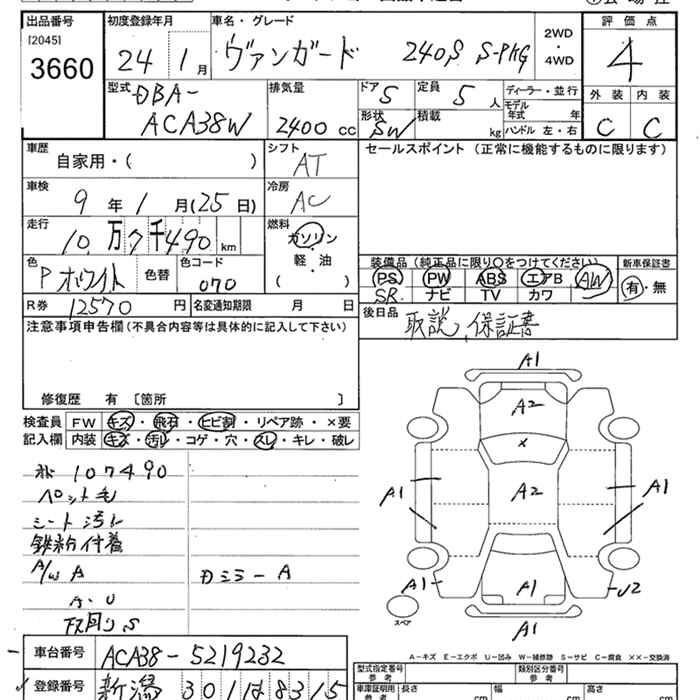 出品番号
[2045]
3660
初度登録年月
24 1月
車名・グレード
ヴァンガード 240S S-PKG
2WD
・
4WD
評価点
4
外装 内装
C C
型式
DBA-
ACA38W
排気量
2400 cc
ドア 5
形状 SW
定員 5 人
積載 kg
ディーラー・並行
モデル年式 年
ハンドル 左・右
車歴
自家用・( )
シフト
AT
セールスポイント (正常に機能するものに限ります)
車検
9年 1月(25日)
冷房
AC
走行
10万7千490 km
燃料
ガソリン
・
軽・油
( )
色
Pホワイト
色替
色コード
070
装備品(純正品に限り○をつけてください)
新車保証書
PS PW ABS エアB AW
SR ナビ TV カワ
有・無
R券 12570 円
名変通知期限 月 日
後日品
取説、保証書
注意事項申告欄(不具合内容等は具体的に記入して下さい)
修復歴 有 〔箇所 〕
検査員
記入欄
FW キズ・飛石・ヒビ割・リペア跡・×要
内装 キズ・汚レ・コゲ・穴・スレ・キレ・破レ
107490
ペット毛
シート汚レ
鉄粉付着
A/W A
Dミラー A
A・U
下回りS
A1
A2
×
A1
A2
A1
A1
A1
U2
A1
スペア
A-キズ E-エクボ U-凹み W-補修跡 S-サビ C-腐食 ××-交換済
車台番号
ACA38-5219232
登録番号
新潟 301は8315
型式指定番号
参考
類別区分番号
参考
車庫証明用
参考
長さ cm
幅 cm
高さ cm